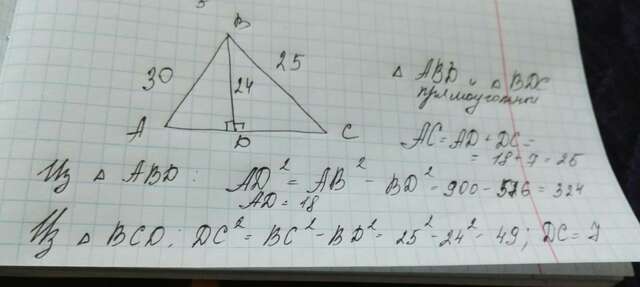 B
30
24
25
A
D
C
△ ABD и △ BDC
прямоугольные
AC = AD + DC =
= 18 + 7 = 25
Из △ ABD: AD² = AB² - BD² = 900 - 576 = 324
AD = 18
Из △ BCD: DC² = BC² - BD² = 25² - 24² = 49; DC = 7